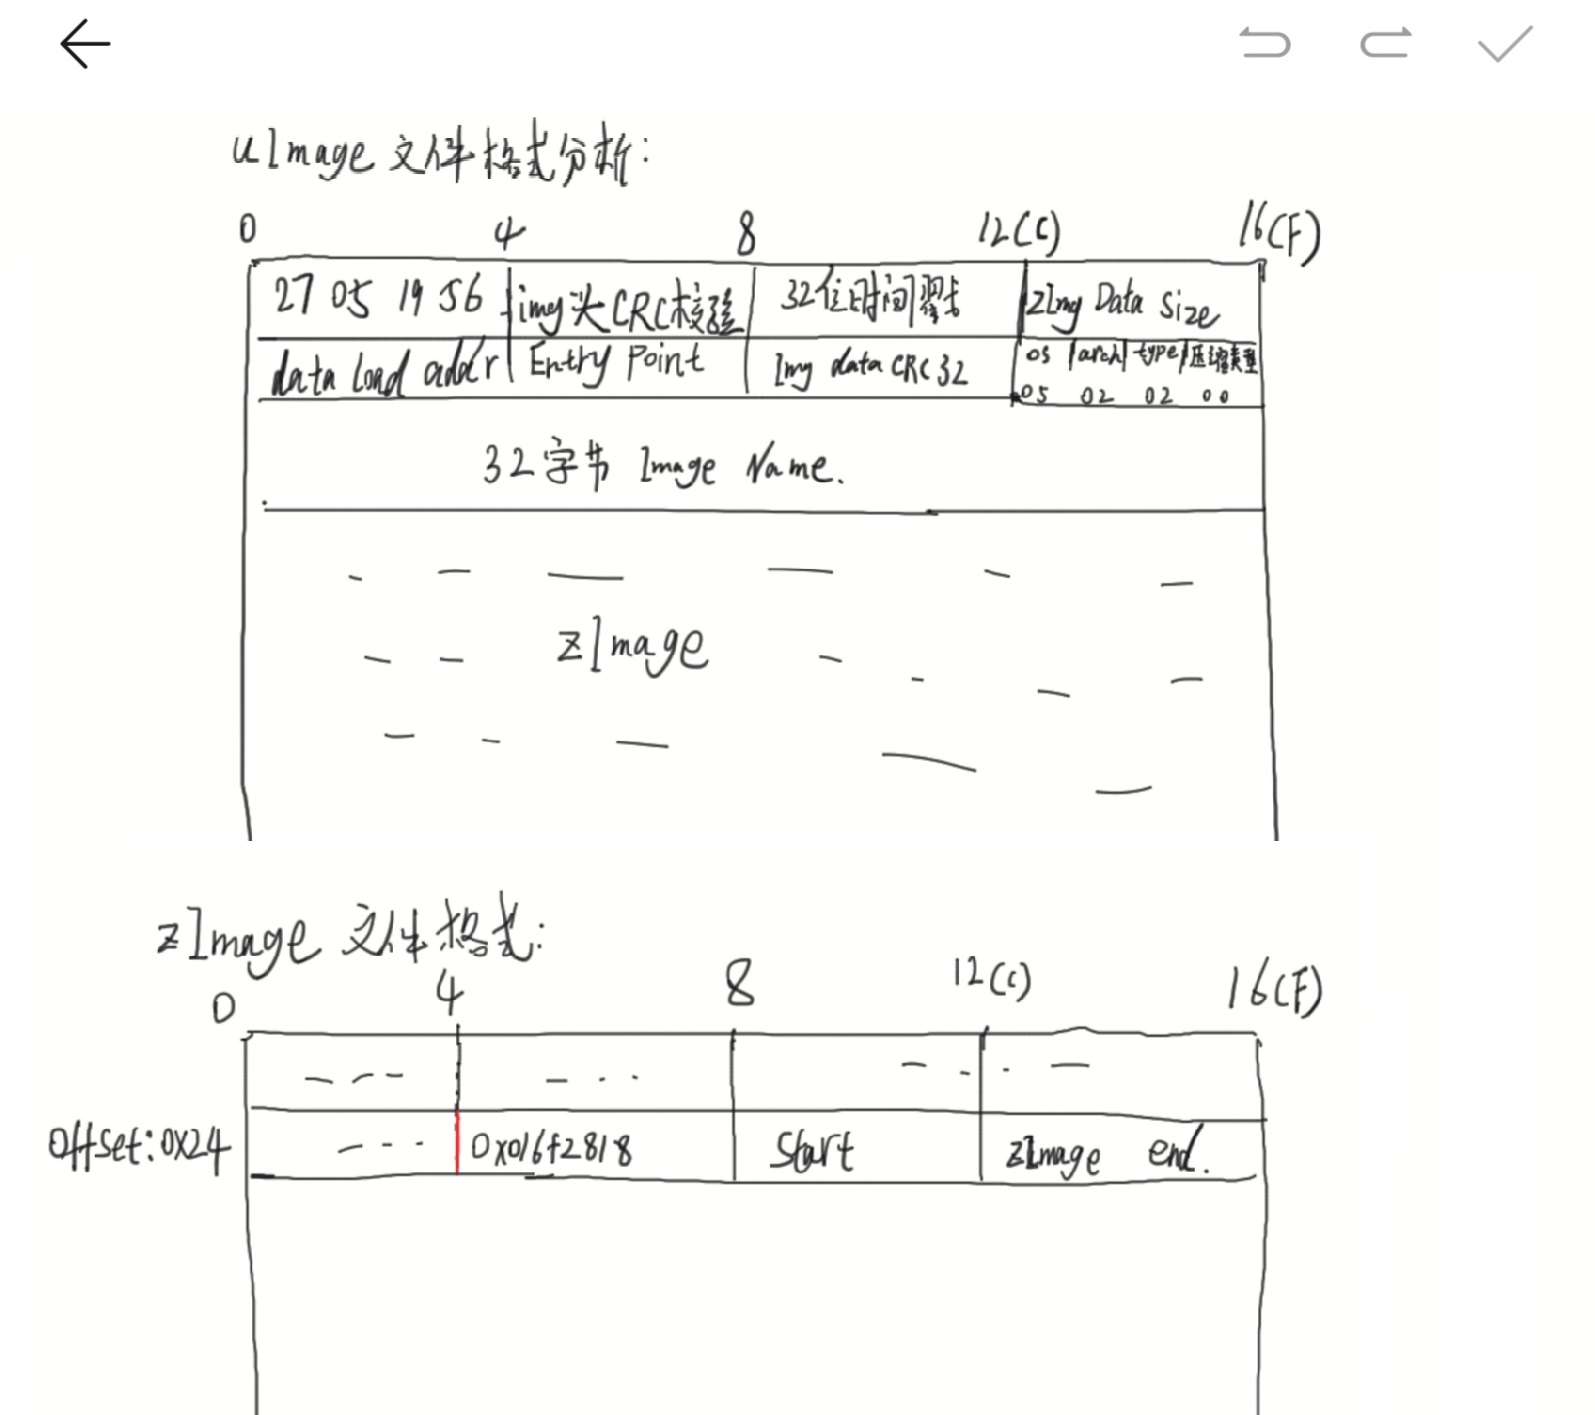 uImage 文件格式分析:
0 4 8 12(C) 16(F)
27 05 19 56 img头CRC校验 32位时间戳 zImg Data Size
data load addr Entry Point Img data CRC32 os |arch| type|压缩类型
05 02 02 00
32字节 Image Name.
zImage
zImage 文件格式:
0 4 8 12(C) 16(F)
Offset:0x24 0x016f2818 Start zImage end.